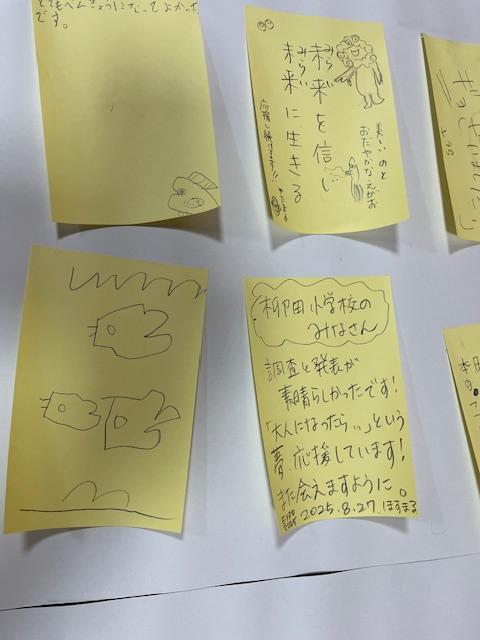 とてもべんきょうになってよかった
です。
未来を信じ
みらい
未来に生きる
みらい
美しい のと
おだやかな えがお
応援し続けます!!
柳田小学校の
みなさん
調査と発表が
素晴らしかったです!
「大人になったら…」という
夢、応援しています!
また会えますように。
EXPO
2025
2025.8.27. ほすまる
本日
の